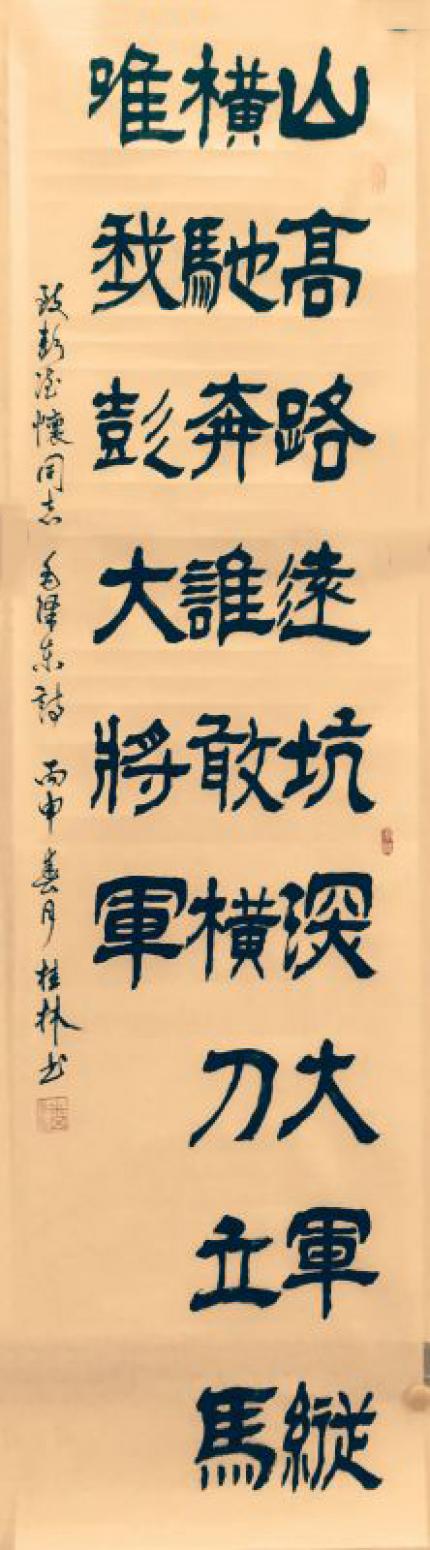 山高路遠坑深大軍縱
橫馳奔誰敢橫刀立馬
唯我彭大將軍
致彭德懷同志 毛澤东詩 丙申春月桂林书